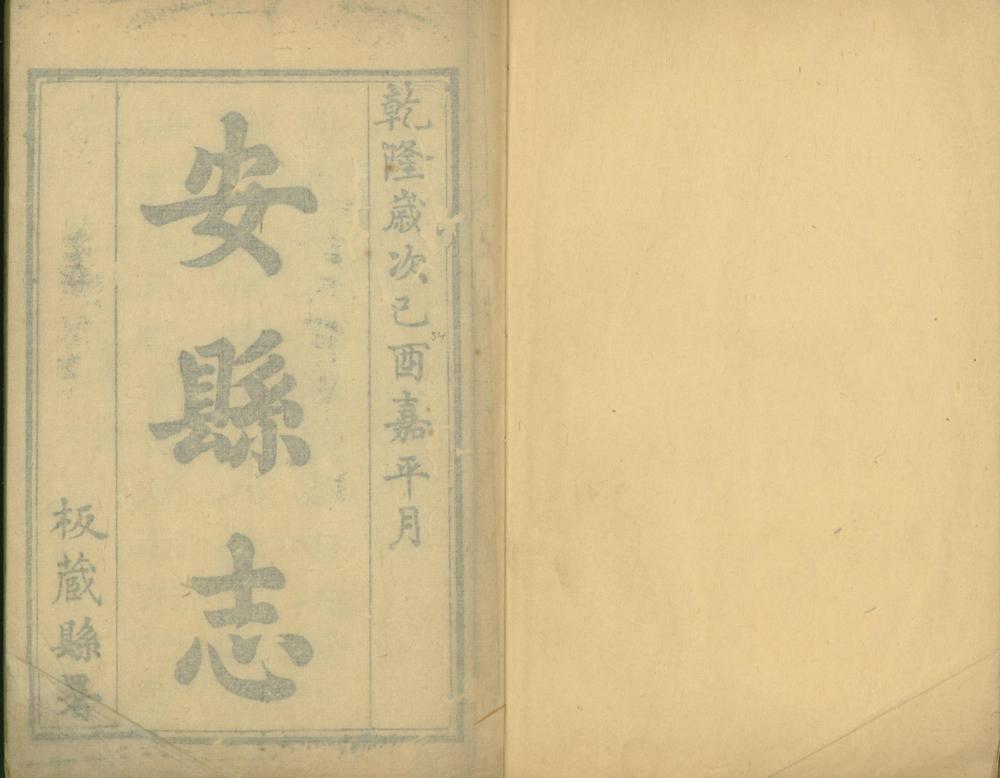 乾隆歲次己酉嘉平月
54
安縣志
板蔵縣署